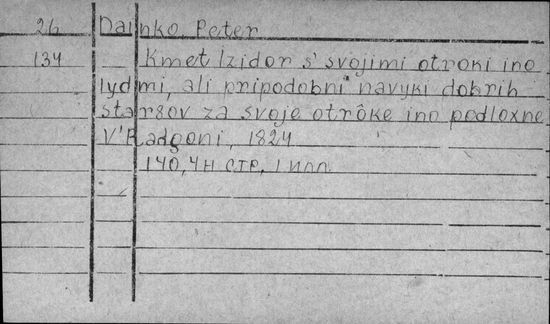 26 Dainko, Peter
134 Kmet Izidor s' svojimi otroki ino
lydmi, ali pripodobni navyki dobrih
starsov za svoje otrôke ino podloxne
V' Radgoni, 1824
140, 4н стр, 1 илл.